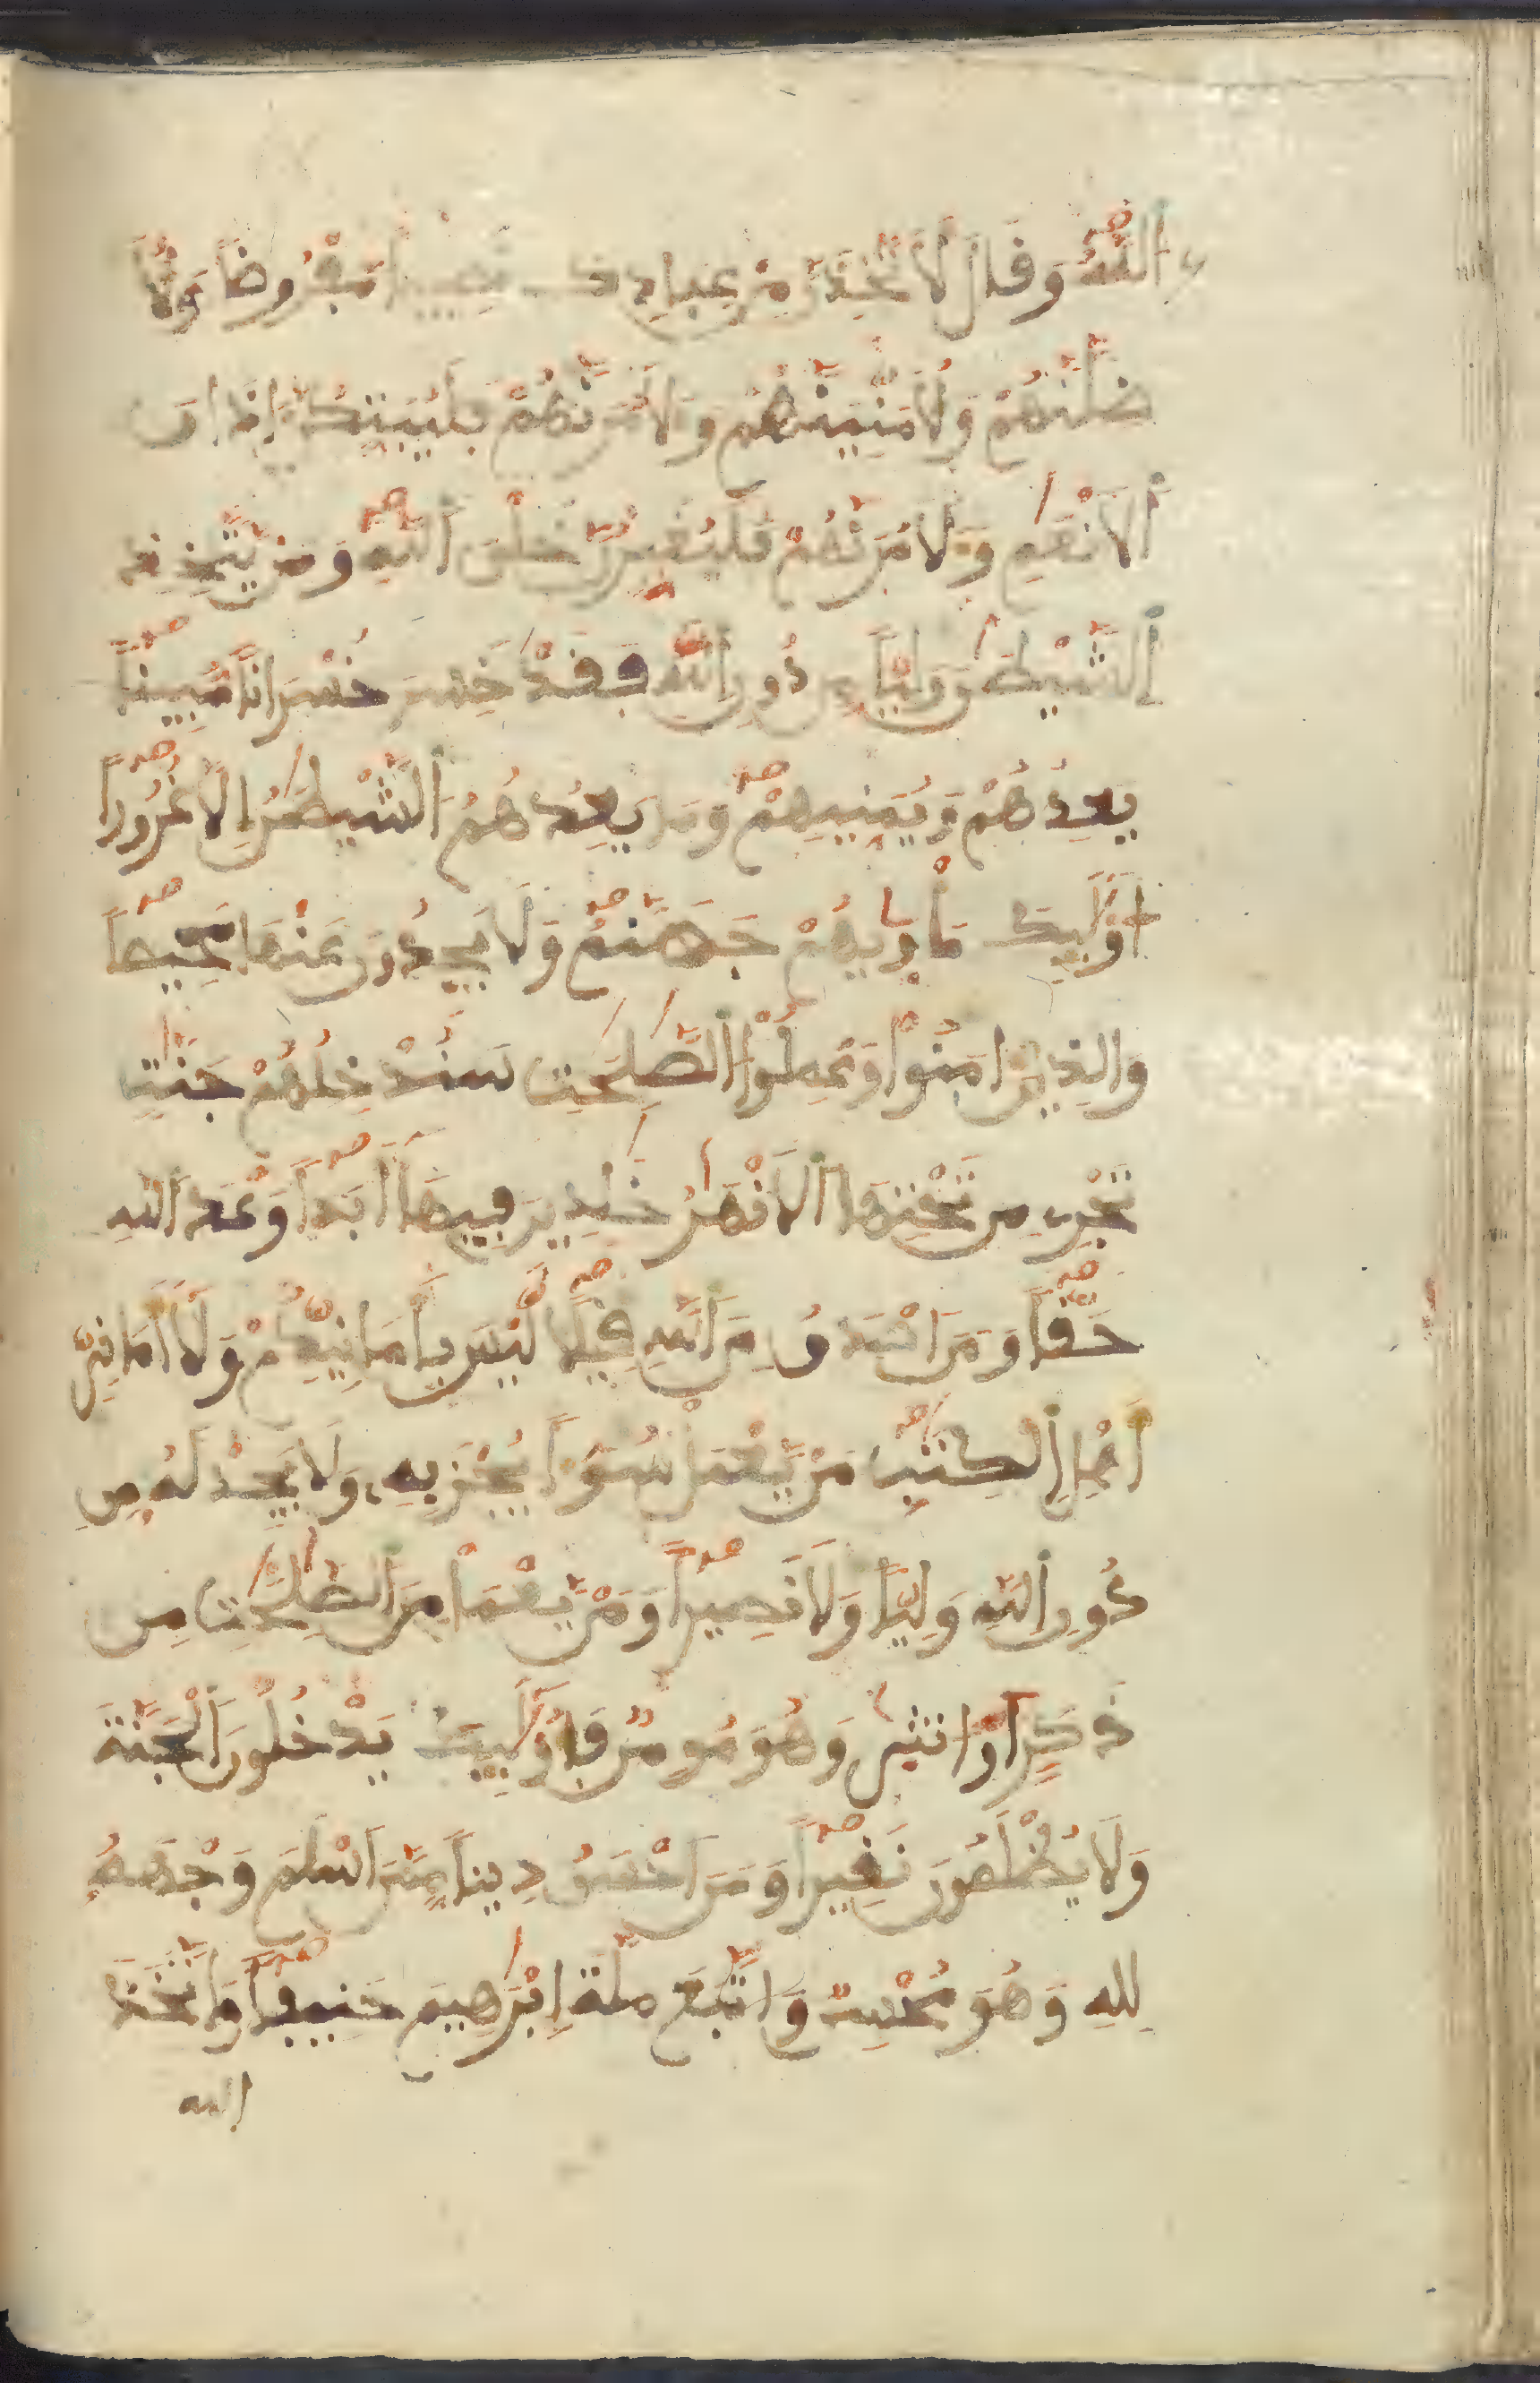 اللَّهُ وَقَالَ لَأَتَّخِذَنَّ مِنْ عِبَادِكَ نَصِيبًا مَّفْرُوضًا وَلَأُ
ضِلَّنَّهُمْ وَلَأُمَنِّيَنَّهُمْ وَلَأمُرَنَّهُمْ فَلَيُبَتِّكُنَّ ءَاذَانَ
اَ۬لَانْعَٰمِ وَلَأمُرَنَّهُمْ فَلَيُغَيِّرُنَّ خَلْقَ اَ۬للَّهِ وَمَنْ يَّتَّخِذِ
اِ۬لشَّيْطَٰنَ وَلِيًّا مِّن دُونِ اِ۬للَّهِ فَقَدْ خَسِرَ خُسْرَانًا مُّبِينًا
يَعِدُهُمْ وَيُمَنِّيهِمْ وَمَا يَعِدُهُمُ اُ۬لشَّيْطَٰنُ إِلَّا غُرُورًا
أُوْلَٰٓئِكَ مَأْوِيٰهُمْ جَهَنَّمُ وَلَا يَجِدُونَ عَنْهَا مَحِيصًا
وَالذِينَ ءَامَنُواْ وَعَمِلُواْ اُ۬لصَّٰلِحَٰتِ سَنُدْخِلُهُمْ جَنَّٰتٍ
تَجْرِے مِن تَحْتِهَا اَ۬لَانْهَٰرُ خَٰلِدِينَ فِيهَآ أَبَدًا وَعْدَ اَ۬للَّهِ
حَقًّا وَمَنَ اَصْدَقُ مِنَ اَ۬للَّهِ قِيلًا لَّيْسَ بِأَمَانِيِّكُمْ وَلَآ أَمَانِيِّ
أَهْلِ اِ۬لْكِتَٰبِ مَنْ يَّعْمَلْ سُوٓءًا يُجْزَ بِهِۦ وَلَا يَجِدْ لَهُۥ مِن
دُونِ اِ۬للَّهِ وَلِيًّا وَلَا نَصِيرًا وَمَنْ يَّعْمَلْ مِنَ اَ۬لصَّٰلِحَٰتِ مِن
ذَكَرٍ اَوُ انث۪يٰ وَهُوَ مُومِنٌ فَأُوْلَٰٓئِكَ يَدْخُلُونَ اَ۬لْجَنَّةَ
وَلَا يُظْلَمُونَ نَقِيرًا وَمَنَ اَحْسَنُ دِينًا مِّمَّنَ اَسْلَمَ وَجْهَهُۥ
لِلهِ وَهُوَ مُحْسِنٌ وَاتَّبَعَ مِلَّةَ إِبْرَٰهِيمَ حَنِيفًا وَاتَّخَذَ
الله